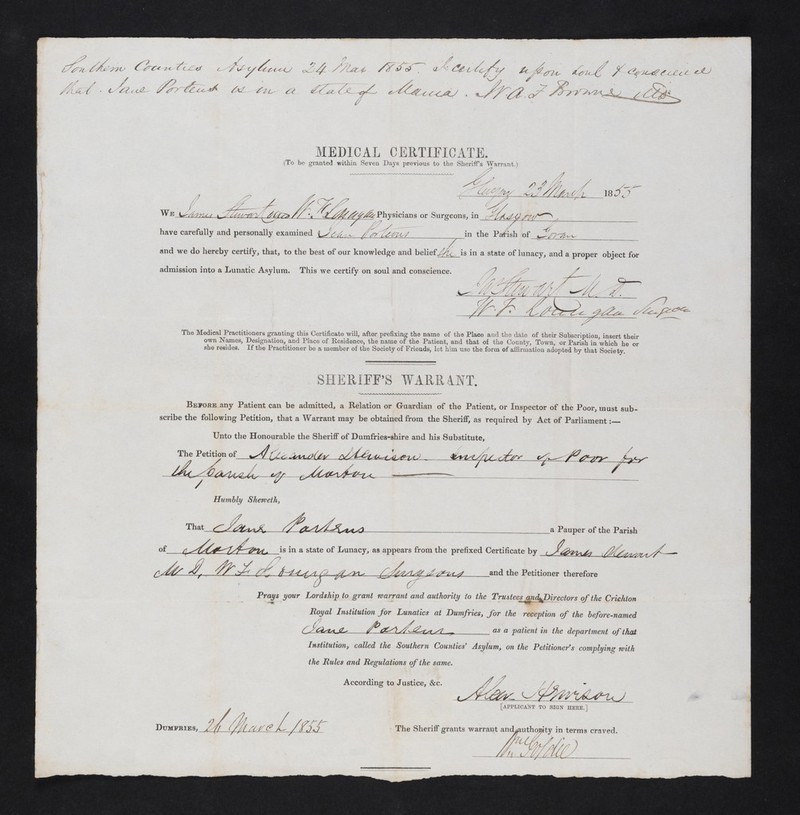 Southern Counties Asylum 24 Mar 1855. I certify upon soul & conscience
that Jane Porteus is in a state of Mania. W. A. F. Browne MD
MEDICAL CERTIFICATE.
(To be granted within Seven Days previous to the Sheriff's Warrant.)
Glasgow 23 March 1855
WE James Stewart and W. F. Physicians or Surgeons, in Glasgow
have carefully and personally examined Jean Porteus in the Parish of Govan
and we do hereby certify, that, to the best of our knowledge and belief she is in a state of lunacy, and a proper object for
admission into a Lunatic Asylum. This we certify on soul and conscience.
Stewart M.D.
W. F. Surgeon
The Medical Practitioners granting this Certificate will, after prefixing the name of the Place and the date of their Subscription, insert their
own Names, Designation, and Place of Residence, the name of the Patient, and that of the County, Town, or Parish in which he or
she resides. If the Practitioner be a member of the Society of Friends, let him use the form of affirmation adopted by that Society.
SHERIFF'S WARRANT.
BEFORE any Patient can be admitted, a Relation or Guardian of the Patient, or Inspector of the Poor, must sub-
scribe the following Petition, that a Warrant may be obtained from the Sheriff, as required by Act of Parliament:—
Unto the Honourable the Sheriff of Dumfries-shire and his Substitute,
The Petition of Alexander Hewison Inspector of Poor for
the parish of Morton
Humbly Sheweth,
That Jane Porteus a Pauper of the Parish
of Morton is in a state of Lunacy, as appears from the prefixed Certificate by James Stewart
M D, W F Surgeons and the Petitioner therefore
Prays your Lordship to grant warrant and authority to the Trustees and Directors of the Crichton
Royal Institution for Lunatics at Dumfries, for the reception of the before-named
Jane Porteus as a patient in the department of that
Institution, called the Southern Counties' Asylum, on the Petitioner's complying with
the Rules and Regulations of the same.
According to Justice, &c.
Alexr Hewison
[APPLICANT TO SIGN HERE.]
DUMFRIES, 26 March 1855 The Sheriff grants warrant and authority in terms craved.
Wm Goldie